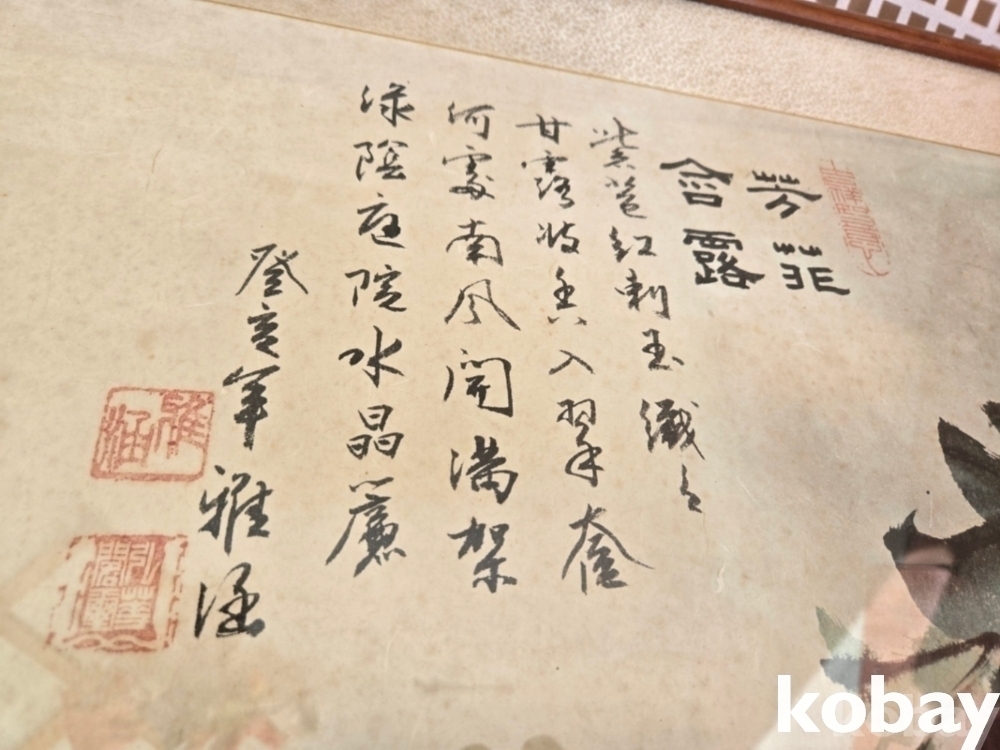 芳菲
含露
紫苞紅刺玉纖々
甘露香入翠奩
何處南風開滿架
綠陰庭院水晶簾
癸亥年 雅涵
雅涵
kobay